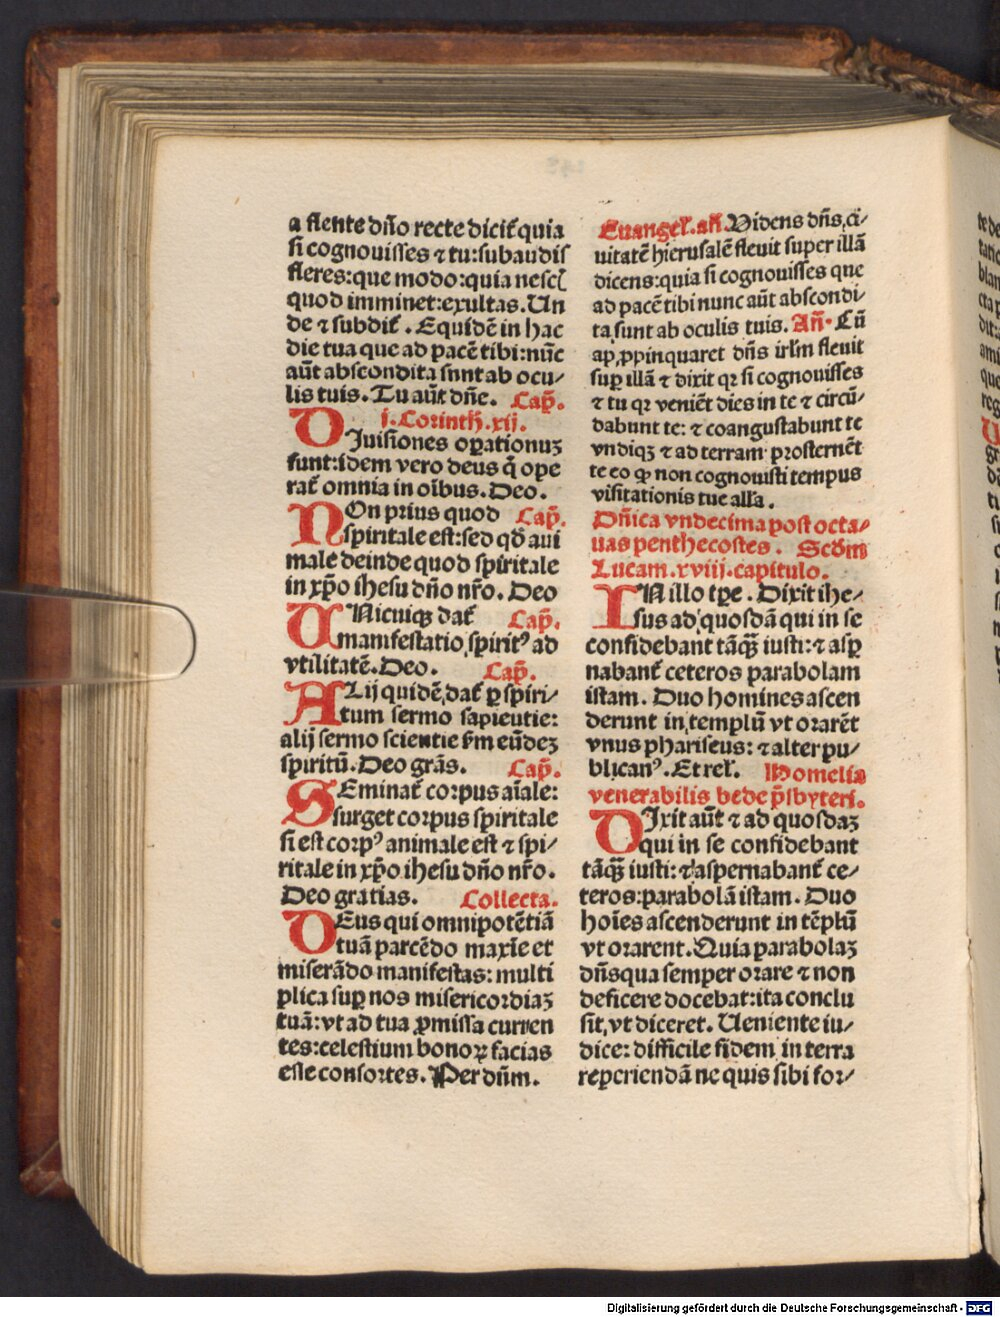 a flente dn̄o recte dicit᷒ quia
si cognouisses ⁊ tu: subaudis
fleres: que modo: quia nescis
quod imminet: exultas. Un
de ⁊ subdit᷒. Equidē in hac
die tua que ad pacē tibi: nūc
aūt abscondita sunt ab ocu⸗
lis tuis. Tu aūt dn̄e. Cap̄.
j. Corinth. xij.
DJuisiones oꝑationuꝫ
sunt: idem vero deus q̄ ope
rat᷒ omnia in oībus. Deo.
NOn prius quod Cap̄.
spiritale est: sed qd̄ aui
male deinde quod spiritale
in xp̄o ihesu dn̄o nr̄o. Deo
UNicuiqꝫ dat᷒ Cap̄.
manifestatio spiritꝰ ad
vtilitatē. Deo. Cap̄.
ALij quidē dat᷒ ꝑ spiri⸗
tum sermo sapientie:
alij sermo scientie ẜm eūdeꝫ
spiritū. Deo grās. Cap̄.
SEminat᷒ corpus aīale:
surget corpus spiritale
si est corpꝰ animale est ⁊ spi⸗
ritale in xp̄o ihesu dn̄o nr̄o.
Deo gratias. Collecta.
DEus qui omnipotētiā
tuā parcēdo maxīe et
miserādo manifestas: multi
plica suꝑ nos misericordiaꝫ
tuā: vt ad tua ꝓmissa curren
tes: celestium bonoꝝ facias
esse consortes. Per dn̄m.
Euangel̄. an̄. Videns dn̄s ci⸗
uitatē hierusalē fleuit super illā
dicens: quia si cognouisses que
ad pacē tibi nunc aūt abscondi⸗
ta sunt ab oculis tuis. An̄. Cū
aꝓpinquaret dn̄s irl̄m fleuit
suꝑ illā ⁊ dixit qꝛ si cognouisses
⁊ tu qꝛ veniēt dies in te ⁊ circū⸗
dabunt te: ⁊ coangustabunt te
vndiqꝫ ⁊ ad terram prosternēt
te eo ꝙ non cognouisti tempus
visitationis tue all̄a.
Dn̄ica vndecima post octa⸗
uas penthecostes. Scd̄m
Lucam. xviij. capitulo.
IN illo tꝑe. Dixit ihe⸗
sus ad quosdā qui in se
confidebant tāqꝫ iusti: ⁊ asꝑ
nabant᷒ ceteros parabolam
istam. Duo homines ascen
derunt in templū vt orarēt
vnus phariseus: ⁊ alter pu⸗
blicanꝰ. Et rel̄. Homelia
venerabilis bede p̄sbyteri.
DJxit aūt ⁊ ad quosdaꝫ
qui in se confidebant
tāqꝫ iusti: ⁊ aspernabant᷒ ce⸗
teros: parabolā istam. Duo
hoīes ascenderunt in tēplū
vt orarent. Quia parabolaꝫ
dn̄s qua semper orare ⁊ non
deficere docebat: ita conclu
sit, vt diceret. Ueniente iu⸗
dice: difficile fidem in terra
reperiendā ne quis sibi for⸗
Digitalisierung gefördert durch die Deutsche Forschungsgemeinschaft - DFG